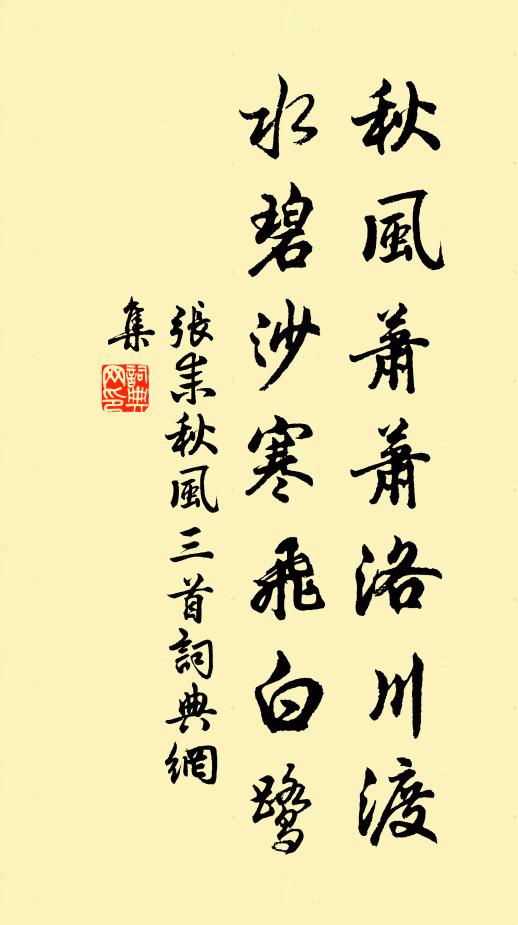 秋風蕭蕭洛川渡
水碧沙寒飛白鷺
張耒秋風三首詞典網
集
詞典网印